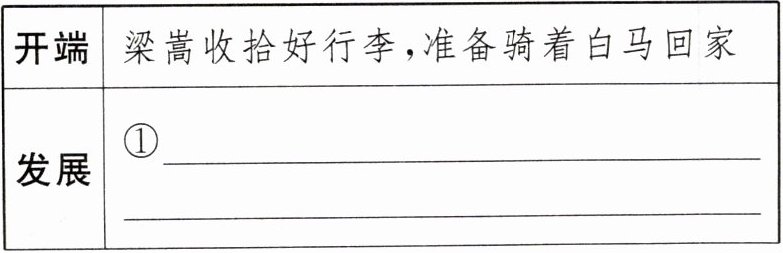 开端 梁嵩收拾好行李,准备骑着白马回家
发展 ①